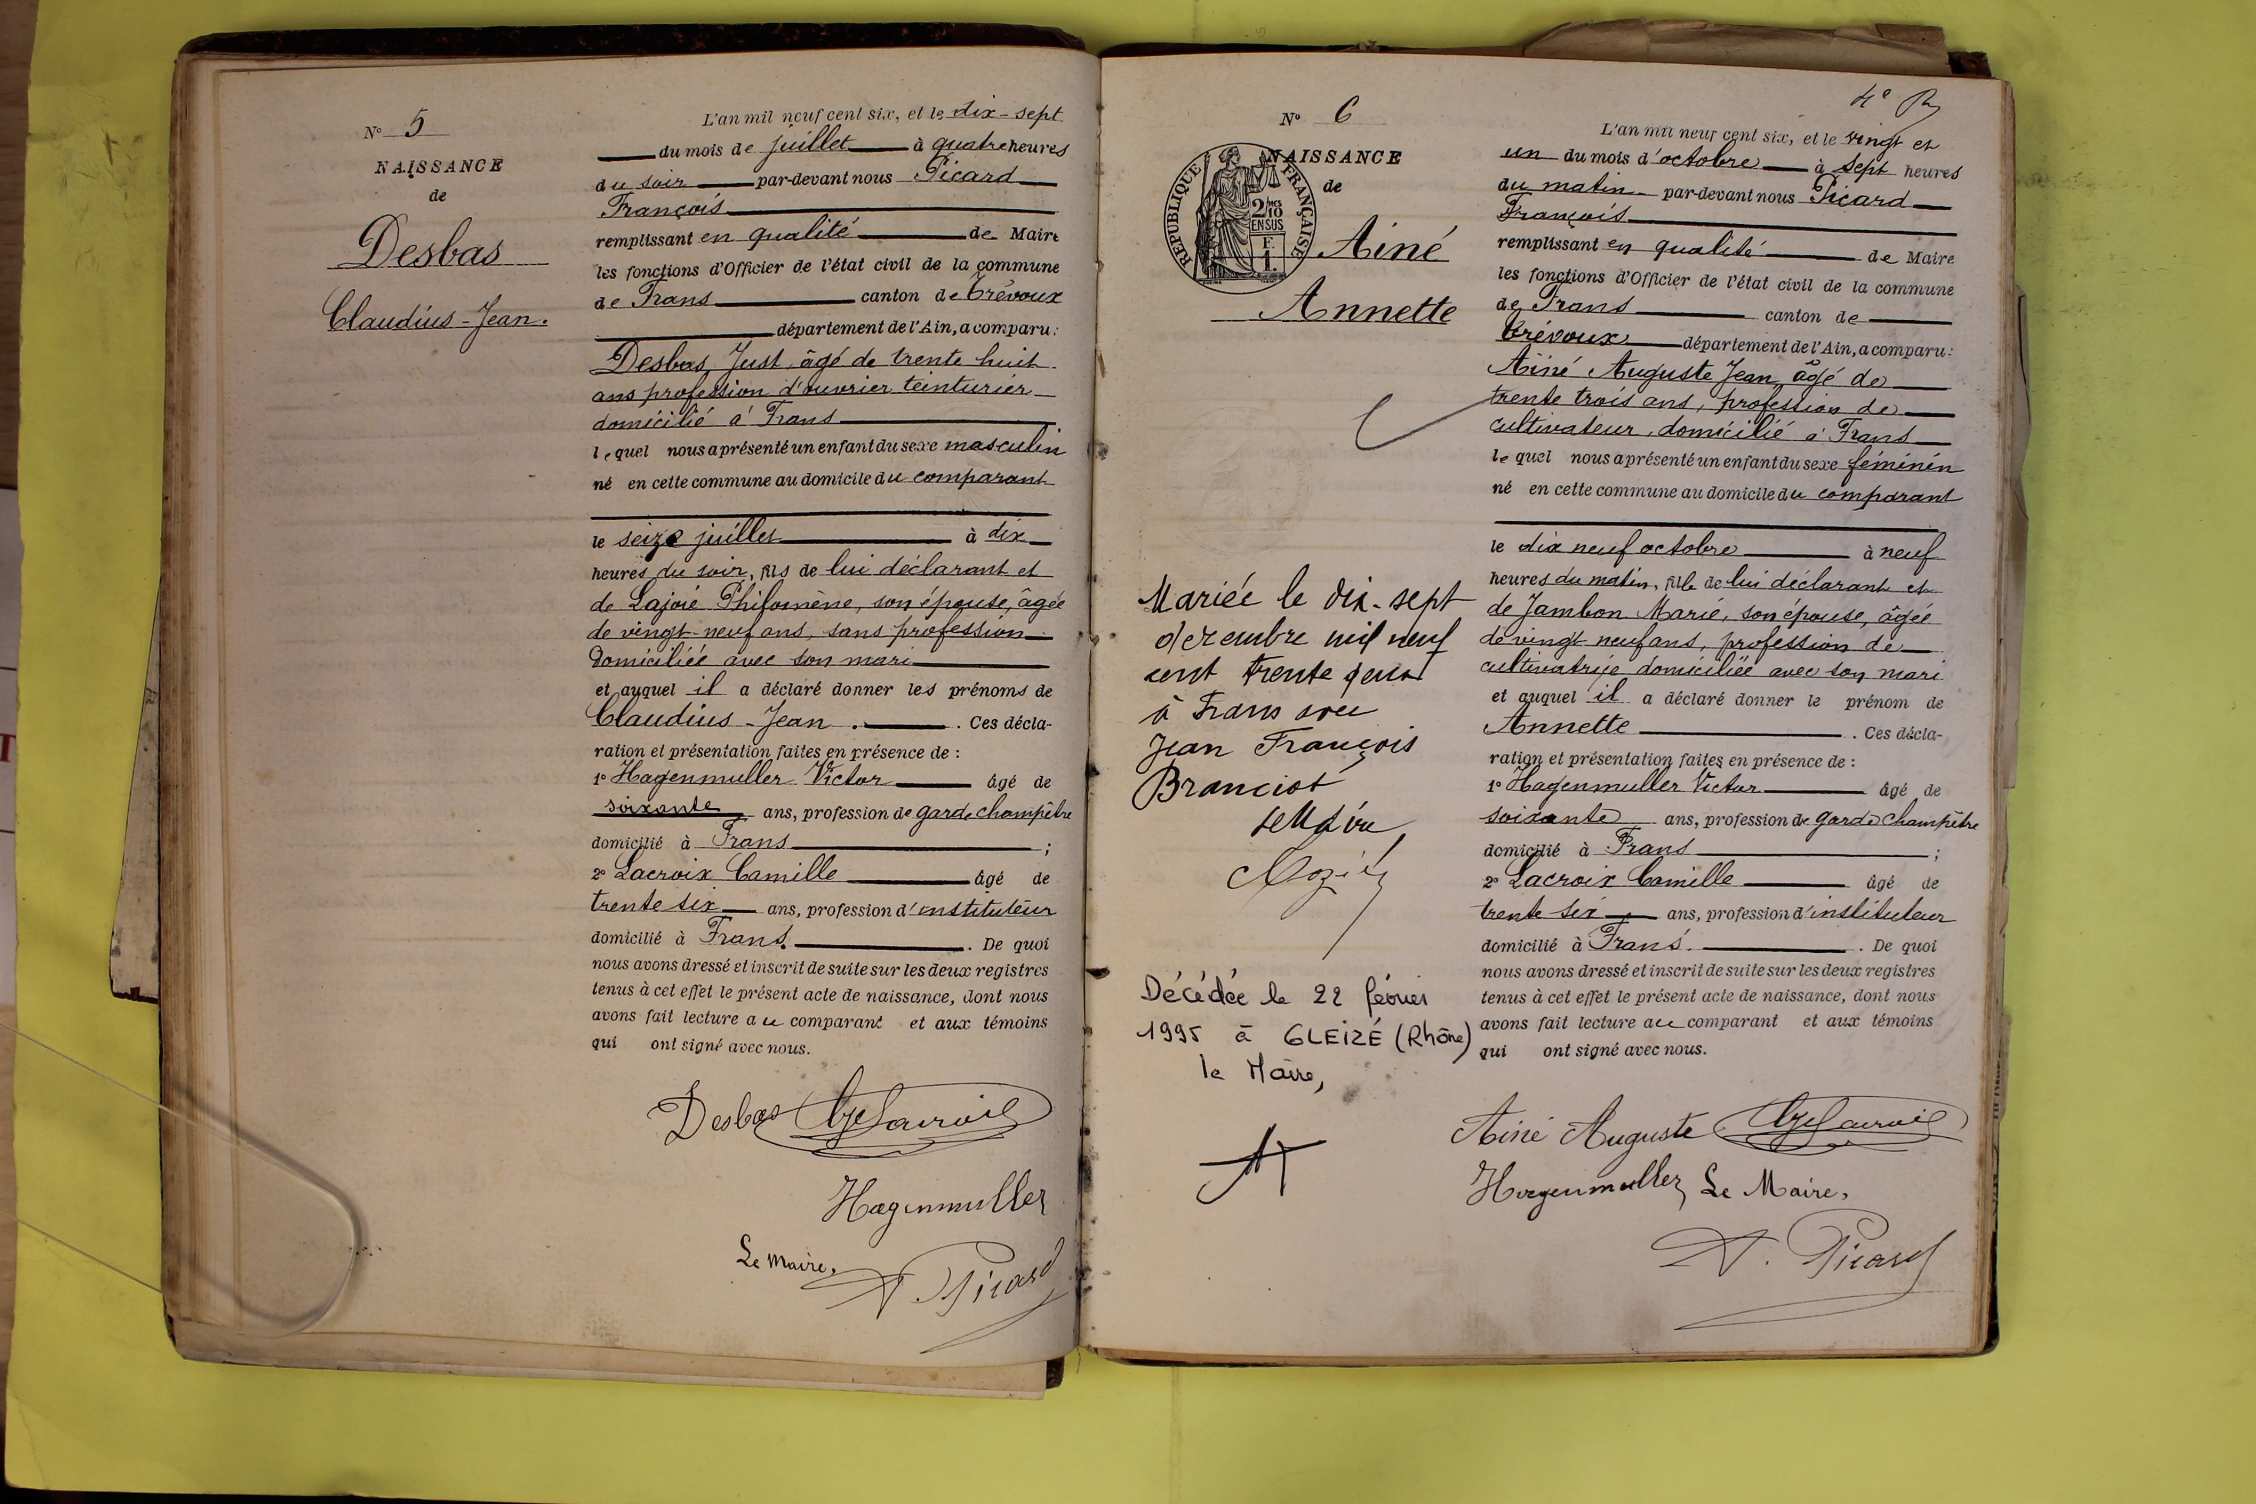 N° 5
NAISSANCE
de
Desbas
Claudius-Jean.
L'an mil neuf cent six, et le dix-sept
du mois de juillet à quatre heures
du soir par-devant nous Picard
François
remplissant en qualité de Maire
les fonctions d'Officier de l'état civil de la commune
de Frans canton de Trévoux
département de l'Ain, a comparu:
Desbas Just, âgé de trente huit
ans profession d'ouvrier teinturier
domicilié à Frans
lequel nous a présenté un enfant du sexe masculin
né en cette commune au domicile du comparant
le seize juillet à dix
heures du soir, fils de lui déclarant et
de Lajoie Philomène, son épouse, âgée
de vingt-neuf ans, sans profession
domiciliée avec son mari
et auquel il a déclaré donner les prénoms de
Claudius-Jean. . Ces décla-
ration et présentation faites en présence de :
1° Hagenmuller Victor âgé de
soixante ans, profession de garde champêtre
domicilié à Frans ;
2° Lacroix Camille âgé de
trente six ans, profession d'instituteur
domicilié à Frans. . De quoi
nous avons dressé et inscrit de suite sur les deux registres
tenus à cet effet le présent acte de naissance, dont nous
avons fait lecture au comparant et aux témoins
qui ont signé avec nous.
Desbas Lacroix
Hagenmuller
Le Maire,
Picard
4e
N° 6
NAISSANCE
de
RÉPUBLIQUE FRANÇAISE
2/10
EN SUS
F.
1.
Ainé
Annette
L'an mil neuf cent six, et le vingt et
un du mois d'octobre à sept heures
du matin par-devant nous Picard
François
remplissant en qualité de Maire
les fonctions d'Officier de l'état civil de la commune
de Frans canton de
Trévoux département de l'Ain, a comparu:
Ainé Auguste Jean, âgé de
trente trois ans, profession de
cultivateur, domicilié à Frans
lequel nous a présenté un enfant du sexe féminin
né en cette commune au domicile du comparant
le dix neuf octobre à neuf
heures du matin, fille de lui déclarant et
de Jambon Marie, son épouse, âgée
de vingt neuf ans, profession de
cultivatrice domiciliée avec son mari
et auquel il a déclaré donner le prénom de
Annette . Ces décla-
ration et présentation faites en présence de :
1° Hagenmuller Victor âgé de
soixante ans, profession de garde champêtre
domicilié à Frans ;
2° Lacroix Camille âgé de
trente six ans, profession d'instituteur
domicilié à Frans. . De quoi
nous avons dressé et inscrit de suite sur les deux registres
tenus à cet effet le présent acte de naissance, dont nous
avons fait lecture au comparant et aux témoins
qui ont signé avec nous.
Mariée le dix-sept
décembre mil neuf
cent trente
à Frans avec
Jean François
Branciot
le Maire
Décédée le 22 février
1995 à GLEIZÉ (Rhône)
le Maire,
Ainé Auguste Lacroix
Hagenmuller Le Maire,
Picard